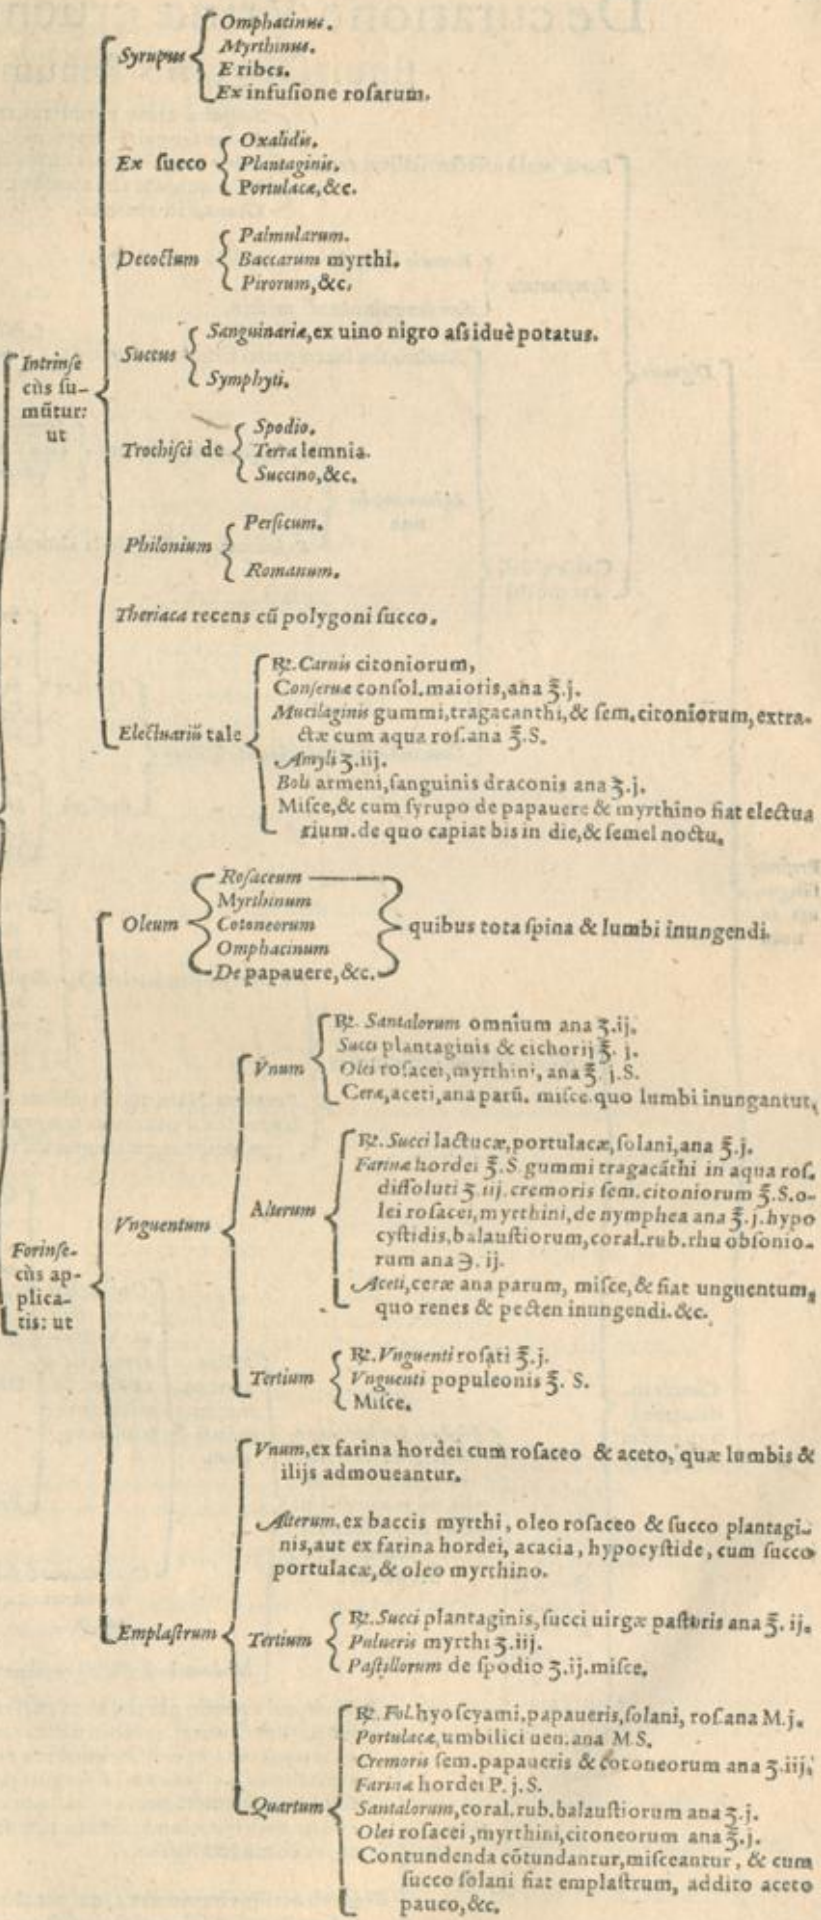 Intrinſe
cùs ſu-
mūtur:
ut
Syrupus
Omphacinus.
Myrthinus.
E ribes.
Ex infuſione roſarum.
Ex ſucco
Oxalidis.
Plantaginis.
Portulacæ,&c.
Decoctum
Palmularum.
Baccarum myrthi.
Pirorum,&c.
Succus
Sanguinariæ,ex uino nigro aſsiduè potatus.
Symphyti.
Trochiſci de
Spodio.
Terra lemnia.
Succino,&c.
Philonium
Perſicum.
Romanum.
Theriaca recens cū polygoni ſucco.
Electuariū tale
℞. Carnis citoniorum,
Conſeruæ conſol.maioris,ana ℥.j.
Mucilaginis gummi,tragacanthi,& ſem.citoniorum,extra-
ctæ cum aqua roſ.ana ℥.S.
Amyli ʒ.iij.
Boli armeni,ſanguinis draconis ana ʒ.j.
Miſce,& cum ſyrupo de papauere & myrthino fiat electua
rium.de quo capiat bis in die,& ſemel noctu.
Forinſe-
cùs ap-
plica-
tis: ut
Oleum
Roſaceum
Myrthinum
Cotoneorum
Omphacinum
De papauere,&c.
quibus tota ſpina & lumbi inungendi.
Vnguentum
Vnum
℞. Santalorum omnium ana ʒ.ij.
Succi plantaginis & cichorij ℥. j.
Olei roſacei,myrthini, ana ℥. j.S.
Ceræ,aceti,ana parū. miſce.quo lumbi inungantur.
Alterum
℞. Succi lactucæ,portulacæ,ſolani,ana ℥.j.
Farinæ hordei ℥.S.gummi tragacāthi in aqua roſ.
diſſoluti ʒ.iij.cremoris ſem.citoniorum ℥.S.o-
lei roſacei,myrthini,de nymphea ana ℥.j.hypo
cyſtidis,balauſtiorum,coral.rub.rhu obſonio-
rum ana ℈. ij.
Aceti,ceræ ana parum, miſce,& fiat unguentum,
quo renes & pecten inungendi.&c.
Tertium
℞. Vnguenti roſati ℥.j.
Vnguenti populeonis ℥. S.
Miſce.
Emplaſtrum
Vnum,ex farina hordei cum roſaceo & aceto, quæ lumbis &
ilijs admoueantur.
Alterum.ex baccis myrthi, oleo roſaceo & ſucco plantagi-
nis,aut ex farina hordei, acacia, hypocyſtide, cum ſucco
portulacæ,& oleo myrthino.
Tertium
℞. Succi plantaginis,ſucci uirgæ paſtoris ana ℥. ij.
Pulueris myrthi ʒ.iij.
Paſtillorum de ſpodio ʒ.ij.miſce.
Quartum
℞. Fol.hyoſcyami,papaueris,ſolani, roſ.ana M.j.
Portulacæ,umbilici uen.ana M.S.
Cremoris ſem.papaueris & cotoneorum ana ʒ.iij.
Farinæ hordei P.j.S.
Santalorum,coral.rub.balauſtiorum ana ʒ.j.
Olei roſacei,myrthini,citoneorum ana ℥.j.
Contundenda cōtundantur,miſceantur, & cum
ſucco ſolani fiat emplaſtrum, addito aceto
pauco,&c.